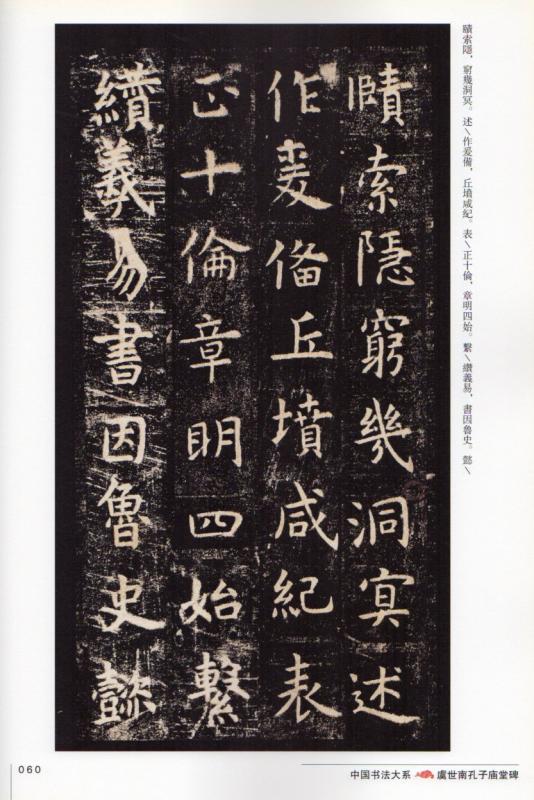 賾索隱窮幾洞冥述
作爰備丘墳咸紀表
正十倫章明四始繫
纘羲易書因魯史懿
賾索隱，窮幾洞冥。述\作爰備，丘墳咸紀。表\正十倫，章明四始。繫\纘義易，書因魯史。懿\
060
中国书法大系 虞世南孔子庙堂碑